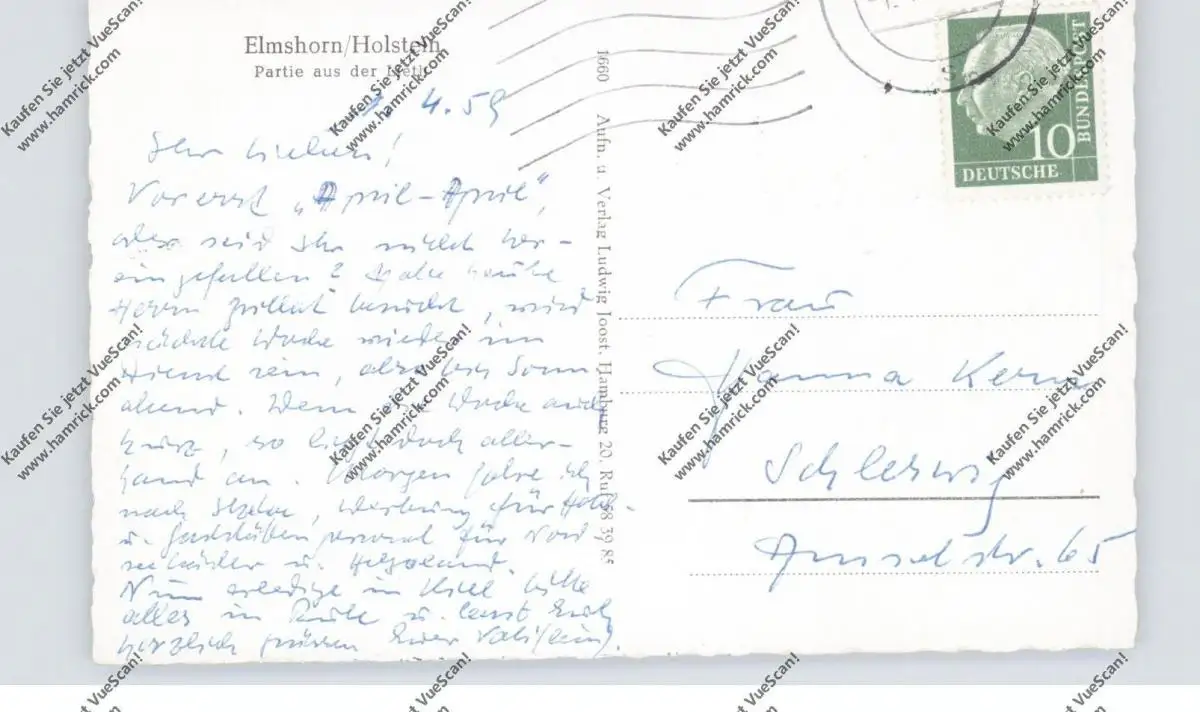 Elmshorn/Holstein
Partie aus der
4.59
Ihr Lieben!
Vorerst „April-April“,
seid Ihr nicht her-
eingefallen? Habe heute
Herrn besucht, wird
nächste Woche wieder im
Dienst sein, also bis Sonn
abend. Wenn die Woche auch
kurz, so liegt doch aller-
hand an. Morgen fahre ich
nach Werbung für Hotel-
u. Gaststättenpersonal für Nord
seebäder u. Helgoland.
Nun erledige in Kiel bitte
alles in Ruhe u. lasst Euch
herzlich grüssen Euer
1660 Aufn. u. Verlag Ludwig Joost, Hamburg 20, Ruf 58 39 85
10
DEUTSCHE
BUNDESPOST
Frau
Hanna
Schleswig
Amselstr. 65
Kaufen Sie jetzt VueScan!
www.hamrick.com